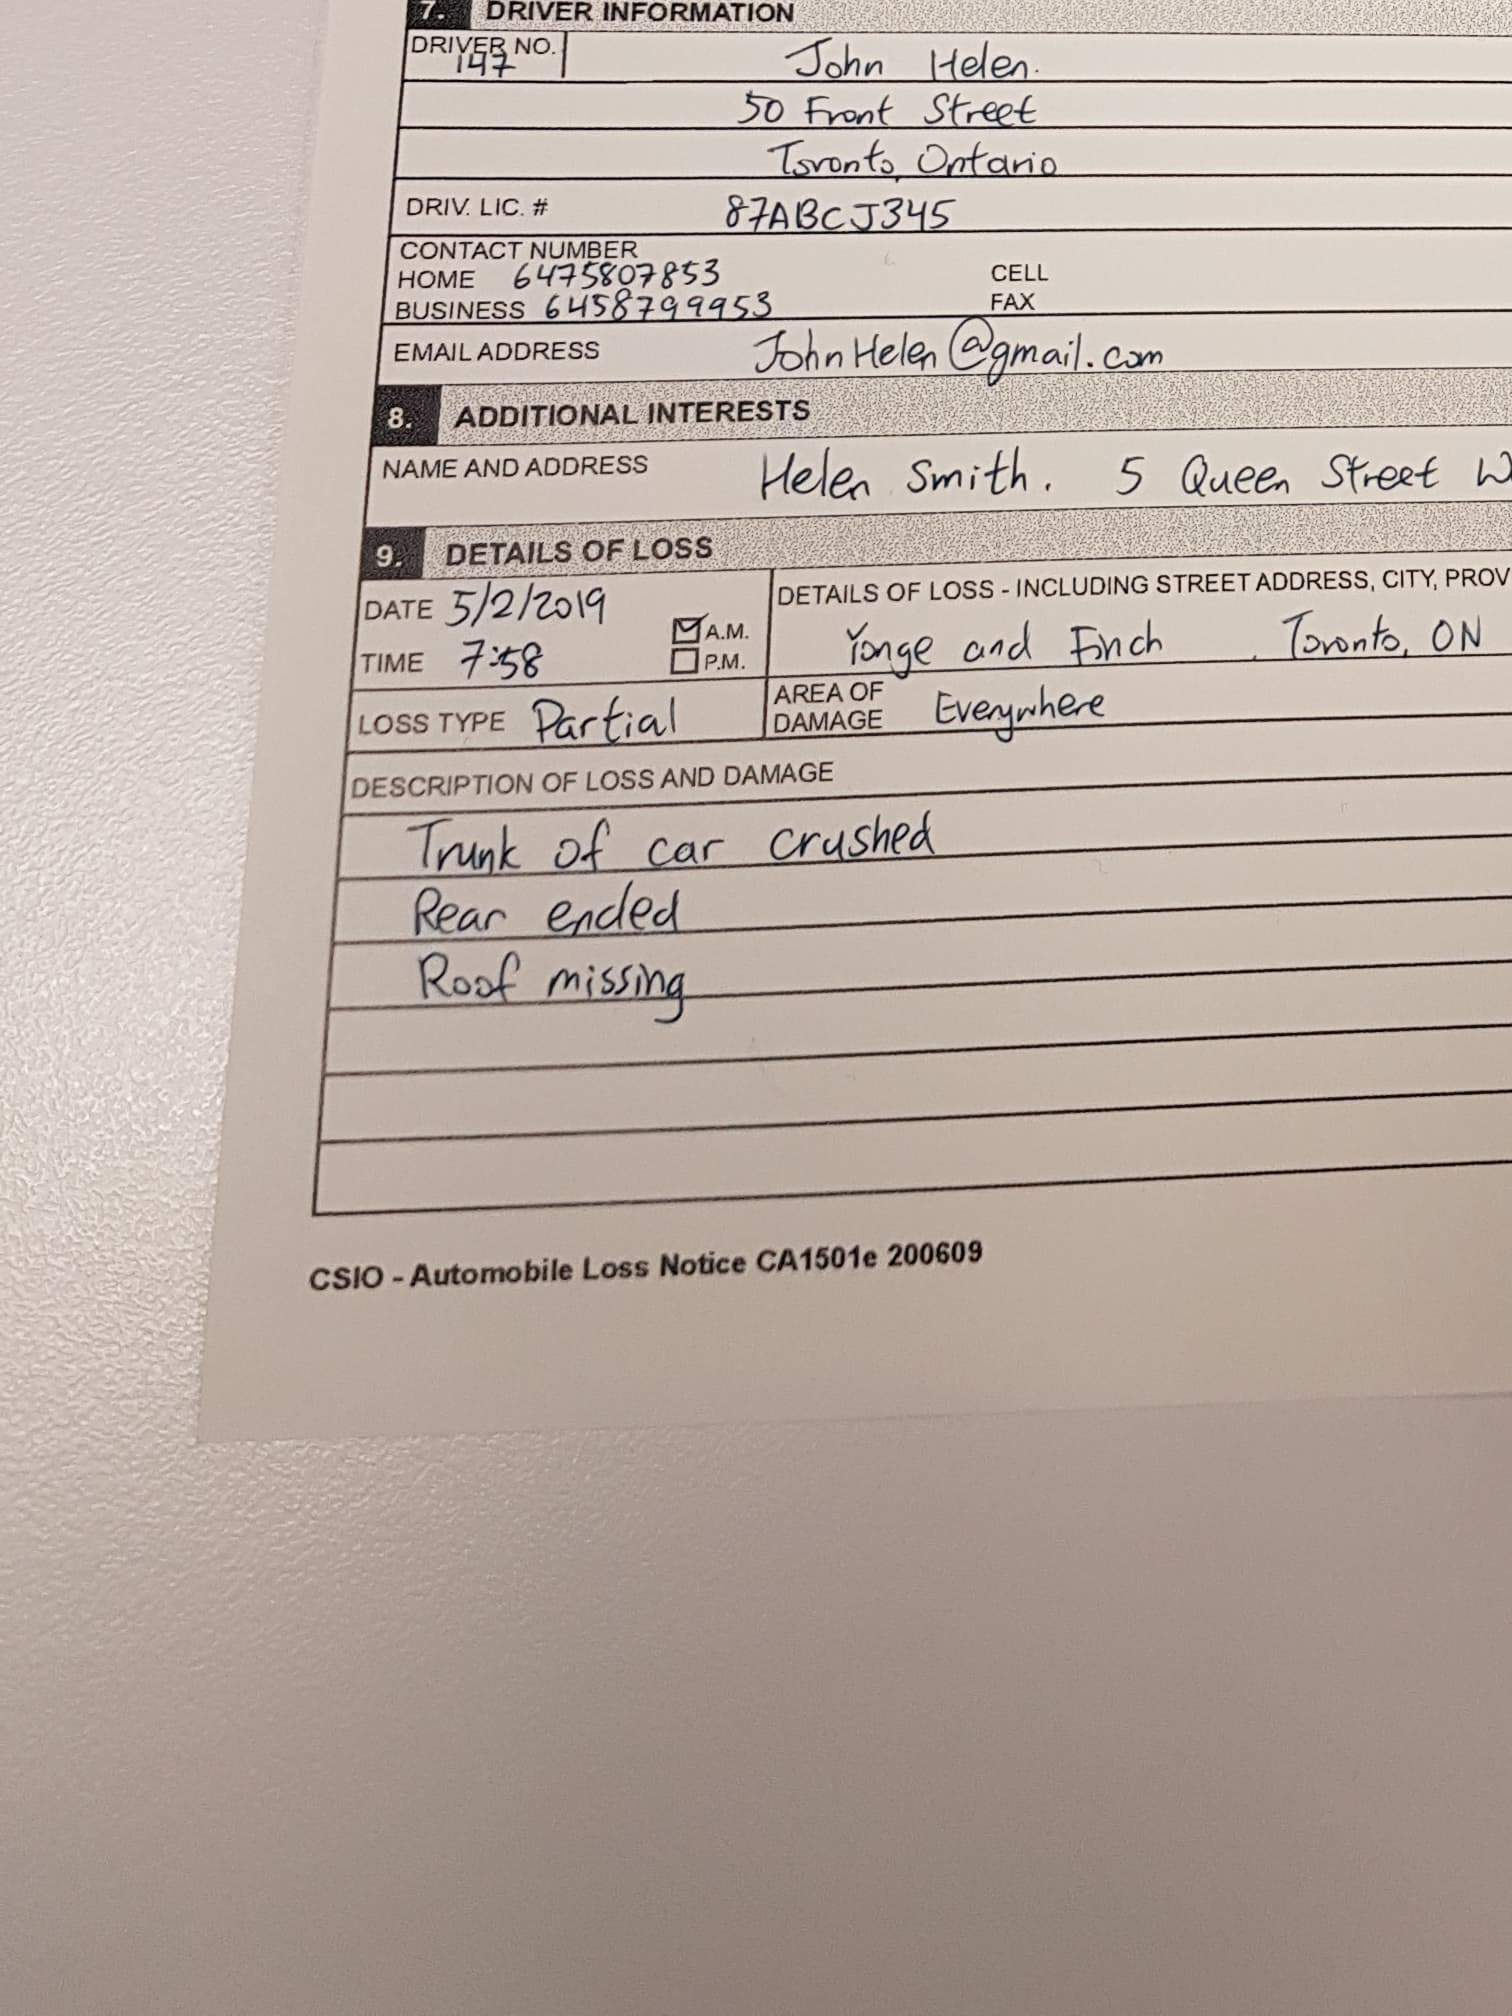 7. DRIVER INFORMATION
DRIVER NO. John Helen.
147
50 Front Street
Toronto, Ontario
DRIV. LIC. # 87ABCJ345
CONTACT NUMBER
HOME 6475807853 CELL
BUSINESS 6458799953 FAX
EMAIL ADDRESS JohnHelen@gmail.com
8. ADDITIONAL INTERESTS
NAME AND ADDRESS Helen Smith. 5 Queen Street W
9. DETAILS OF LOSS
DATE 5/2/2019 A.M. DETAILS OF LOSS - INCLUDING STREET ADDRESS, CITY, PROV
TIME 7:58 P.M. Yonge and Finch Toronto, ON
LOSS TYPE Partial AREA OF DAMAGE Everywhere
DESCRIPTION OF LOSS AND DAMAGE
Trunk of car crushed
Rear ended
Roof missing
CSIO - Automobile Loss Notice CA1501e 200609